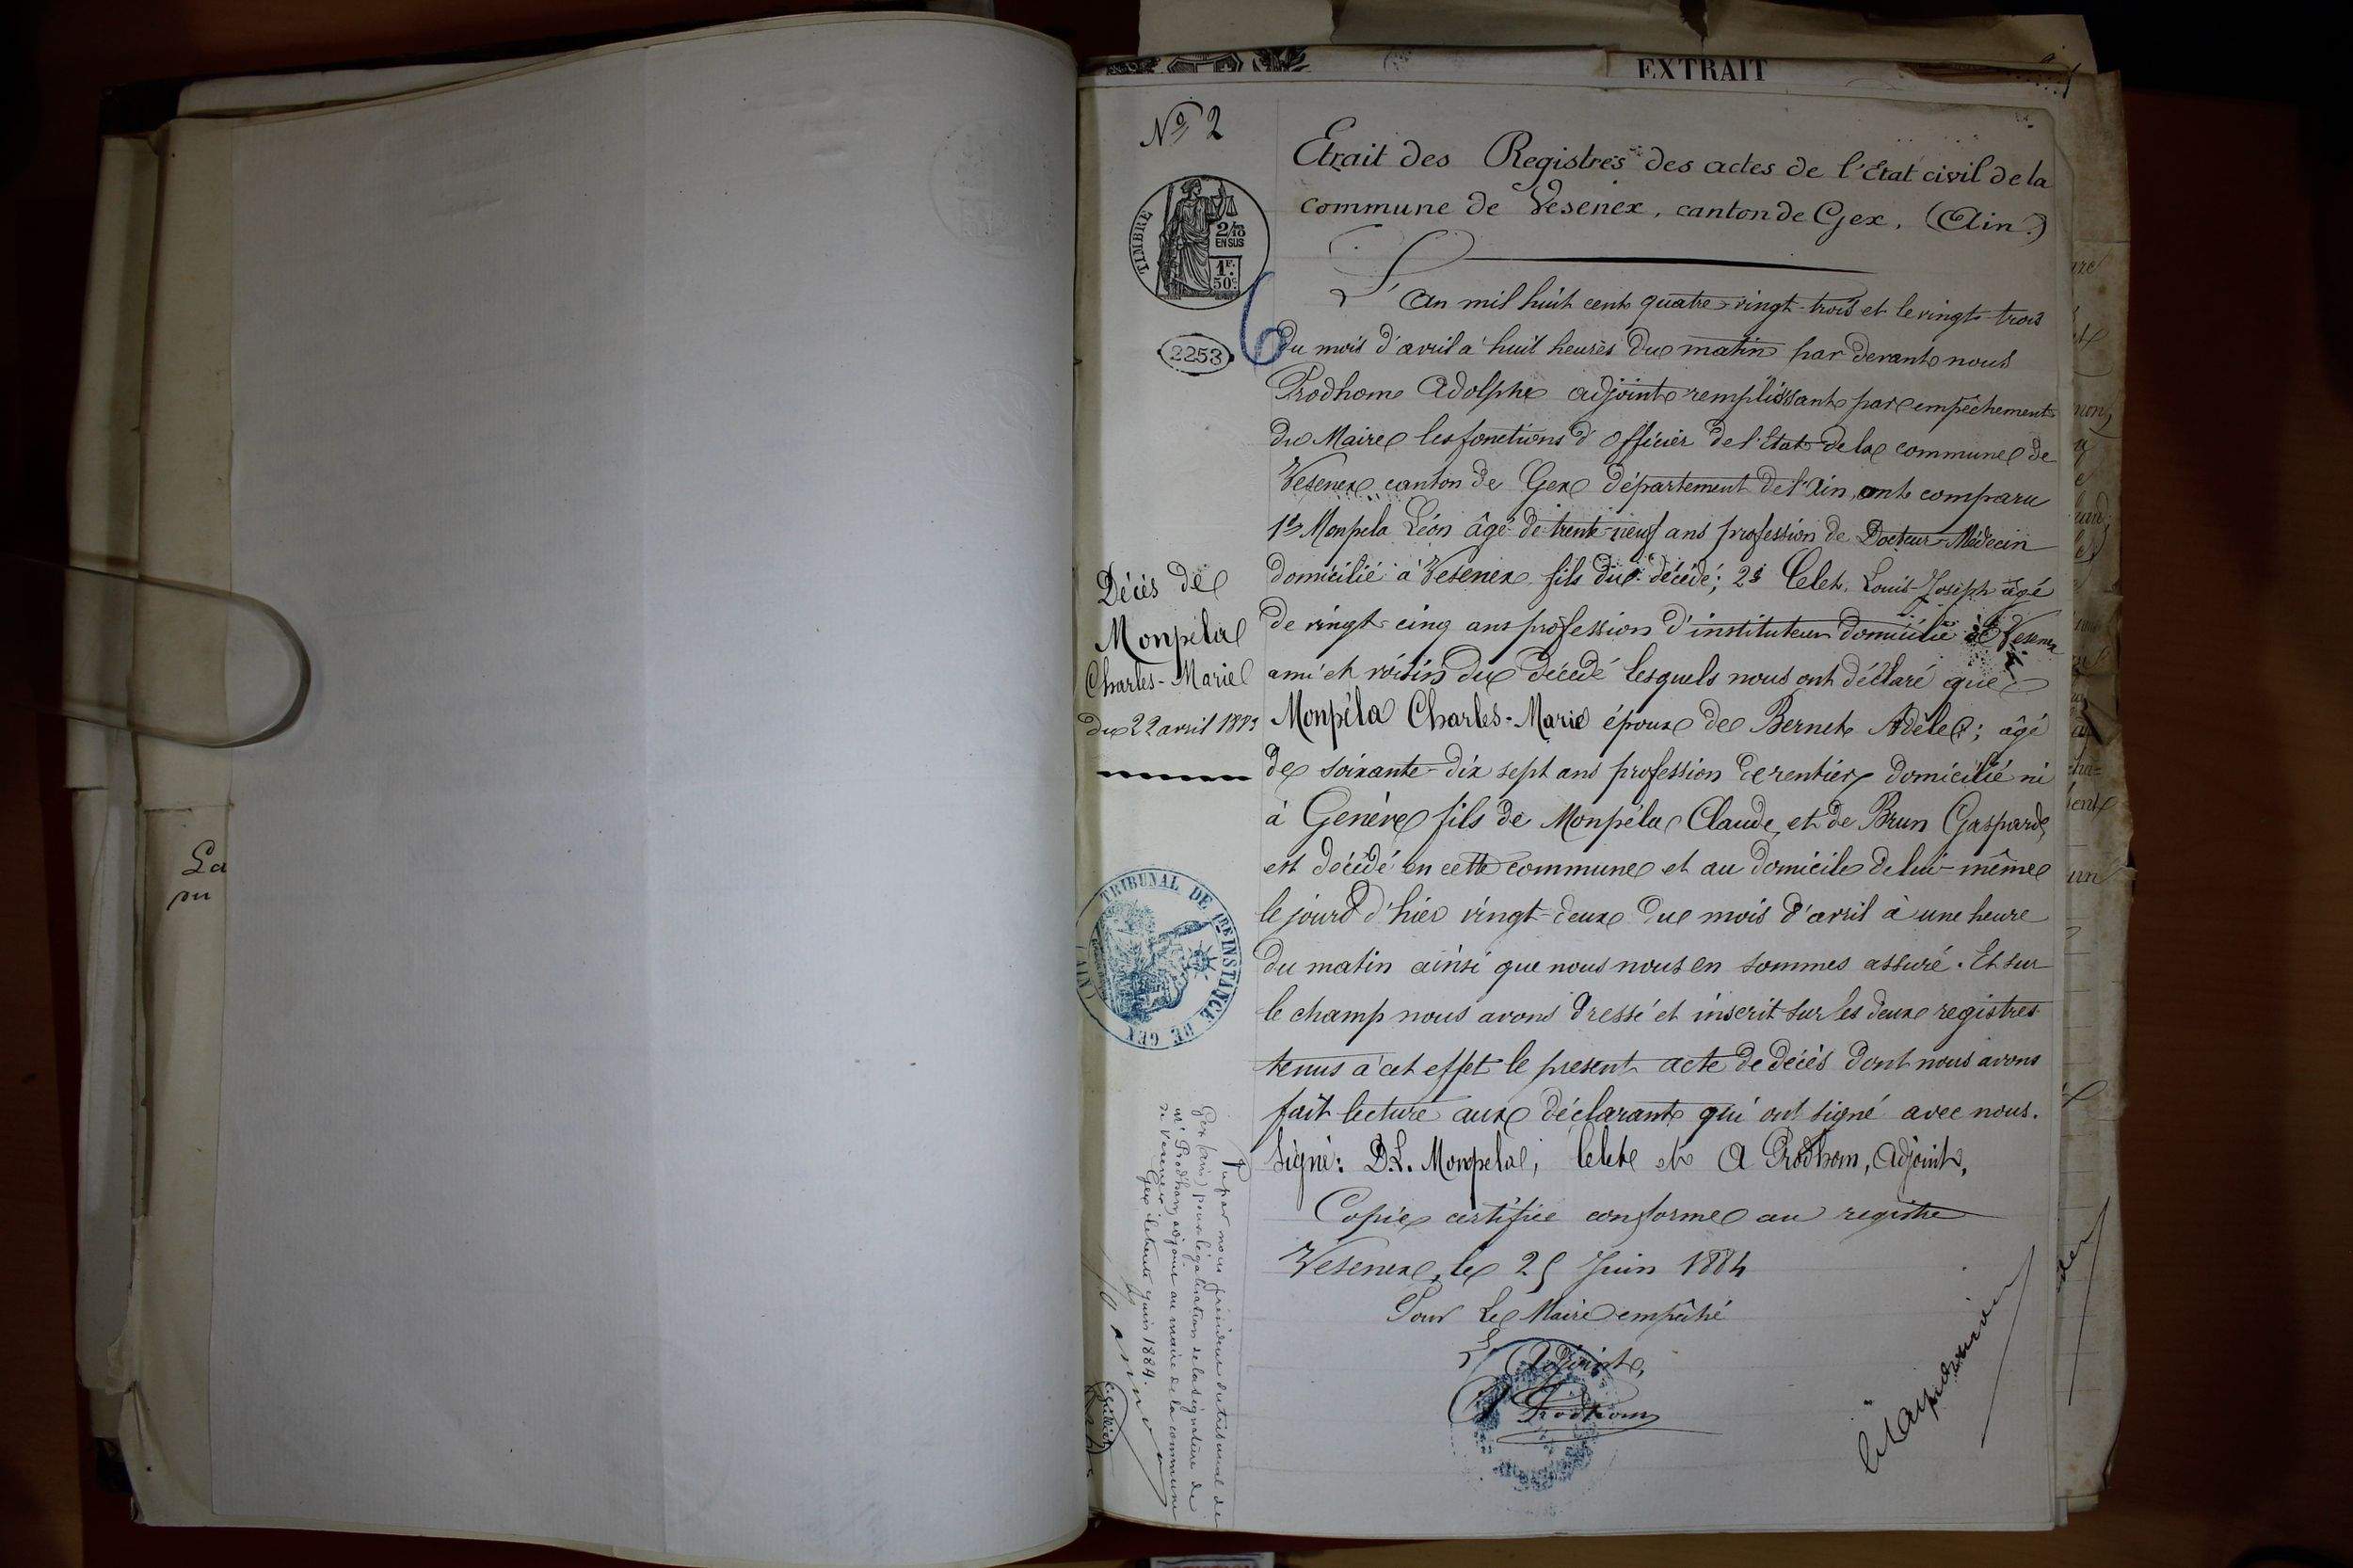 EXTRAIT
Nº 2
Etrait des Registres des actes de l'Etat civil de la
commune de Vesenex, canton de Gex, (Ain)
TIMBRE
2/10
EN SUS
1F.
50c.
2253
L'an mil huit cent quatre-vingt-trois et le vingt-trois
du mois d'avril à huit heures du matin par devant nous
Prodhom Adolphe adjoint remplissant par empêchement
du Maire les fonctions d'Officier de l'Etat de la commune de
Vesenex canton de Gex département de l'Ain, ont comparu
1º Monpela Léon âgé de trente-neuf ans profession de Docteur-Médecin
domicilié à Vesenex fils du décédé; 2º Celet Louis-Joseph âgé
de vingt-cinq ans profession d'instituteur domicilié à Vesenex
ami et voisin du décédé lesquels nous ont déclaré que
Monpéla Charles-Marie époux de Bernet Adèle; âgé
de soixante-dix sept ans profession de rentier domicilié né
à Genève fils de Monpéla Claude et de Brun Gasparde
est décédé en cette commune et au domicile de lui-même
le jourd d'hier vingt-deux du mois d'avril à une heure
du matin ainsi que nous nous en sommes assuré. Et sur
le champ nous avons dressé et inscrit sur les deux registres
tenus à cet effet le present acte de décès dont nous avons
fait lecture aux déclarants qui ont signé avec nous.
Signé: D.L. Monpela, Celet et A Prodhom, Adjoint,
Copie certifiée conforme au registre
Vesenex, le 25 Juin 1884
Pour Le Maire empêché
L'Adjoint,
A Prodhom
Décès de
Monpéla
Charles-Marie
du 22 avril 1883
TRIBUNAL DE 1RE INSTANCE DE GEX
(AIN)
Vu par nous président du tribunal de
Gex (Ain) pour légalisation de la signature de
Mr Prodhom adjoint au maire de la commune
de Vesenex
Gex le trente juin 1884.
La